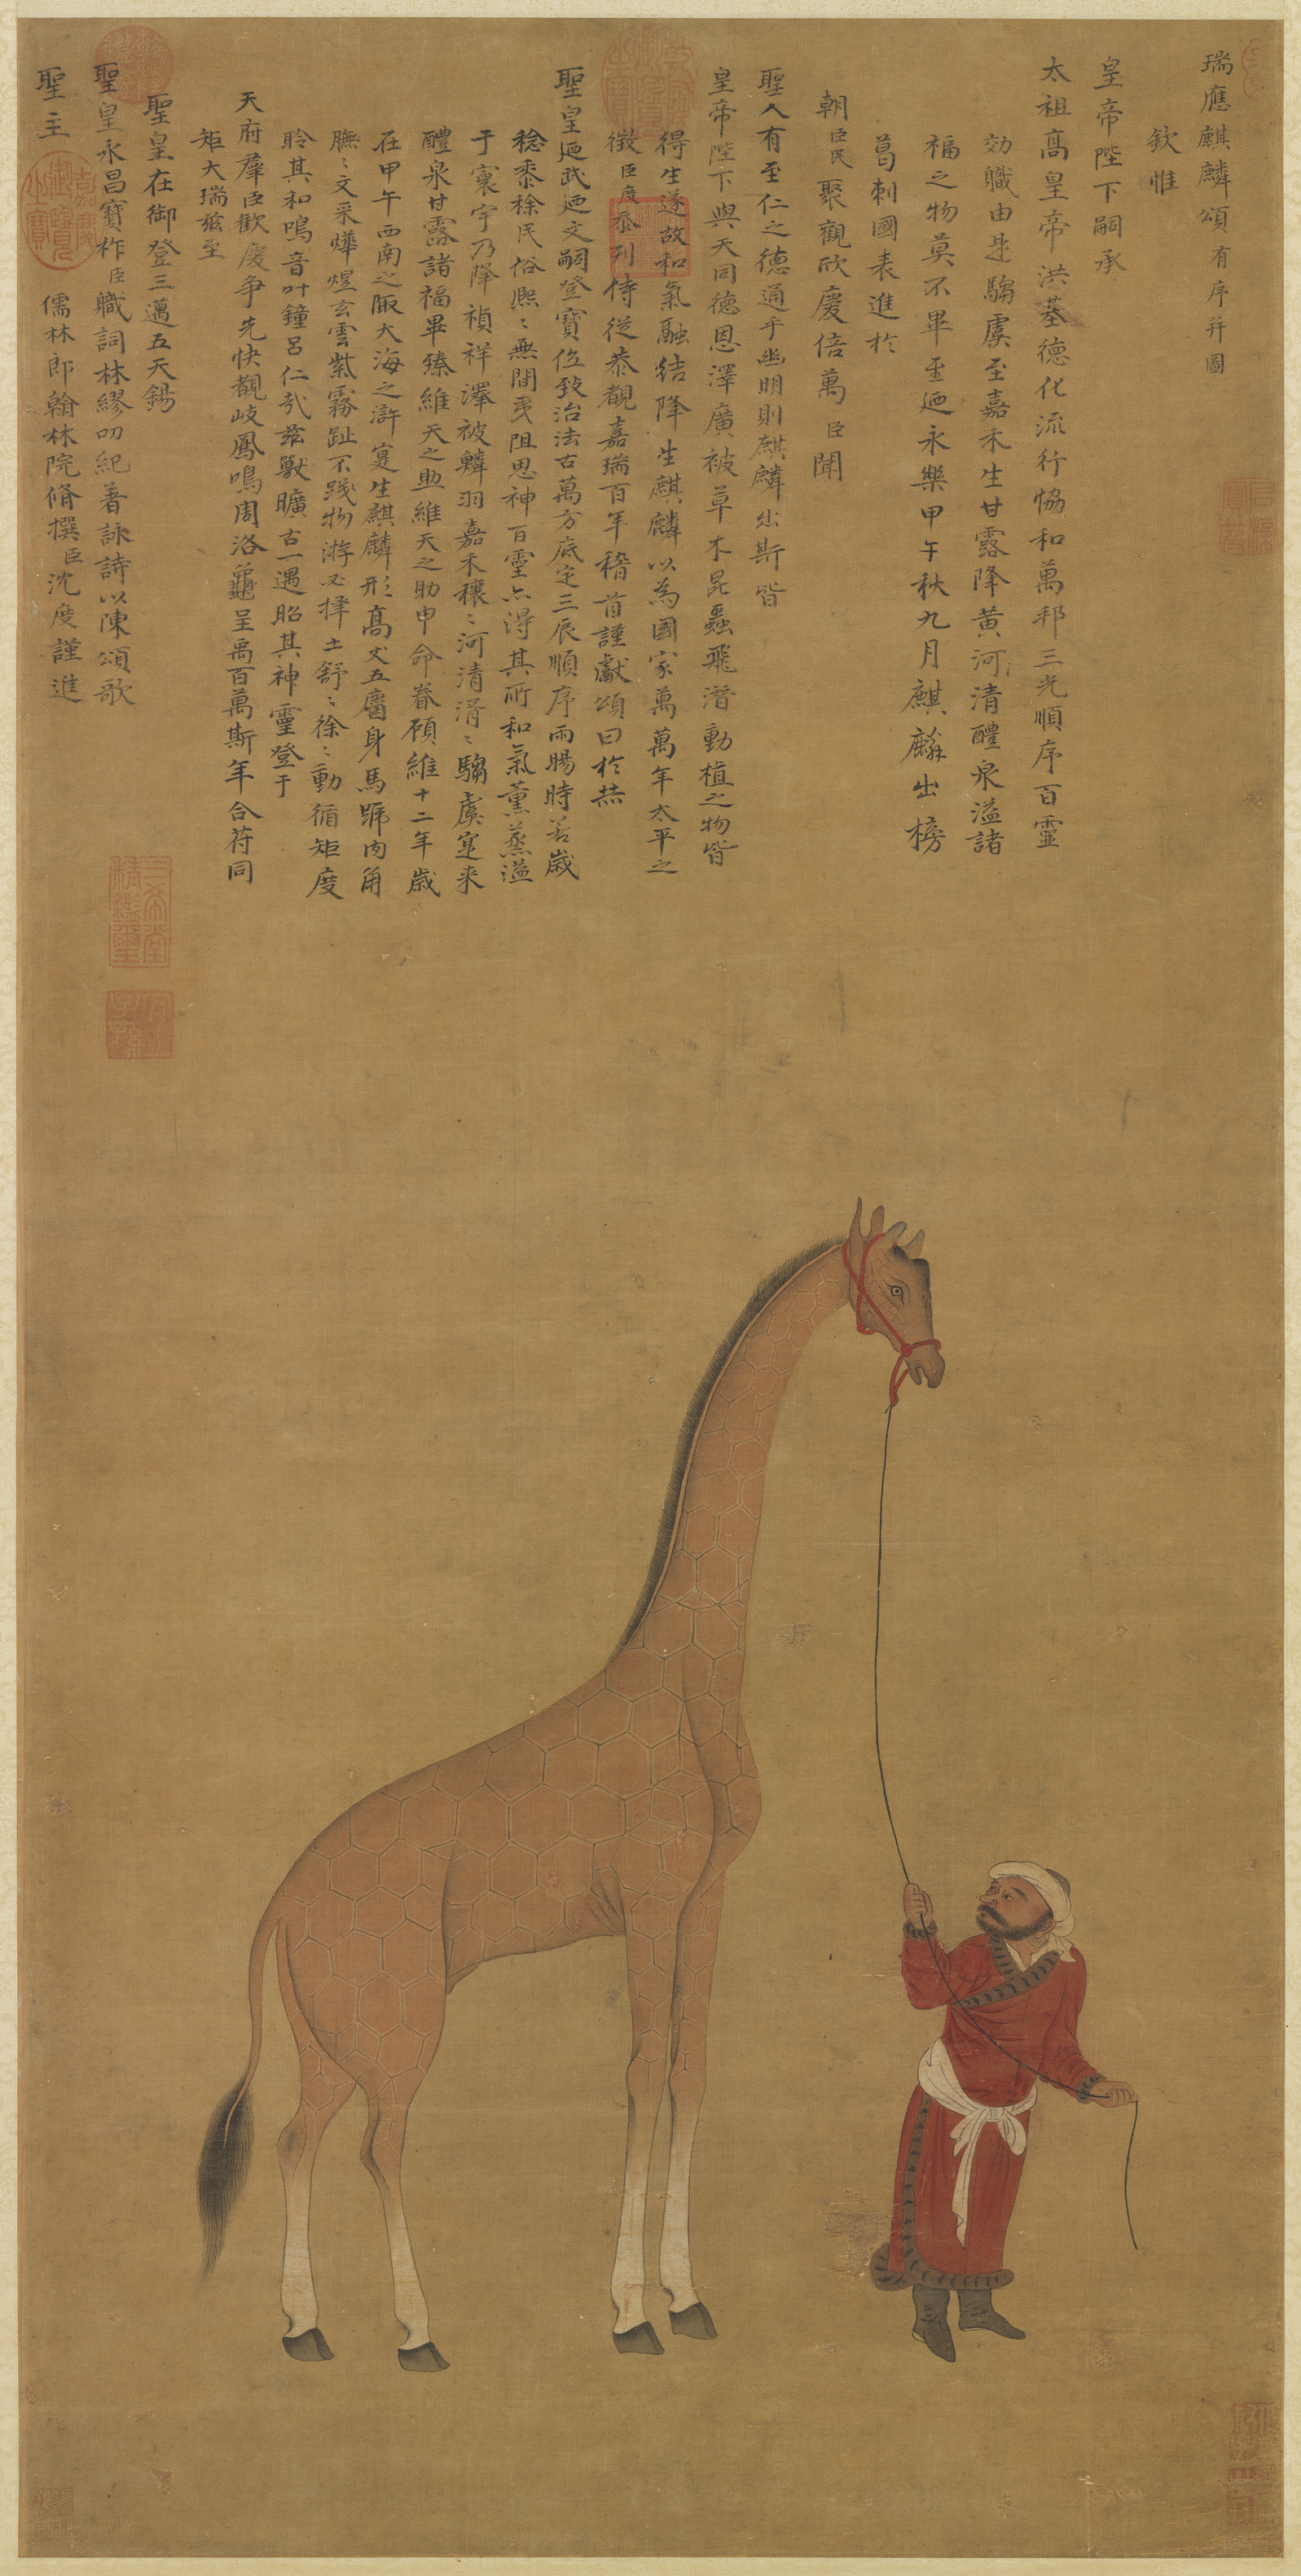 瑞應麒麟頌有序并圖
欽惟
皇帝陛下嗣承
太祖高皇帝洪基德化流行協和萬邦三光順序百靈
効職由是騶虞至嘉禾生甘露降黃河清醴泉溢諸
福之物莫不畢至迺永樂甲午秋九月麒麟出榜
葛剌國表進於
朝臣民聚觀欣慶倍萬臣聞
聖人有至仁之德通乎幽明則麒麟出斯皆
皇帝陛下與天同德恩澤廣被草木昆蟲飛潛動植之物皆
得生遂故和氣融結降生麒麟以為國家萬萬年太平之
徵臣度忝列侍從恭覩嘉瑞百年稽首謹獻頌曰於赫
聖皇迺武迺文嗣登寶位致治法古萬方底定三辰順序雨暘時若歲
稔黍稌民俗熙﹕無間夷阻思神百靈亦得其所和氣薰蒸溢
于寰宇乃降禎祥澤被鱗羽嘉禾穰﹕河清湑﹕騶虞寔来
醴泉甘露諸福畢臻維天之助維天之助申命眷顧維十二年歲
在甲午西南之陬大海之滸寔生麒麟形高丈五麕身馬蹄肉角
膴﹕文采燁煜玄雲紫霧趾不踐物游必擇土舒﹕徐﹕動循矩度
聆其和鳴音叶鐘呂仁哉茲獸曠古一遇昭其神靈登于
天府羣臣歡慶爭先快覩岐鳳鳴周洛龜呈禹百萬斯年合符同
矩大瑞茲至
聖皇在御登三邁五天錫
聖皇永昌寶祚臣職詞林繆叨紀著詠詩以陳頌歌
聖主
儒林郎翰林院脩撰臣沈度謹進
嘉慶御覽之寶
三希堂精鑑璽
宜子孫